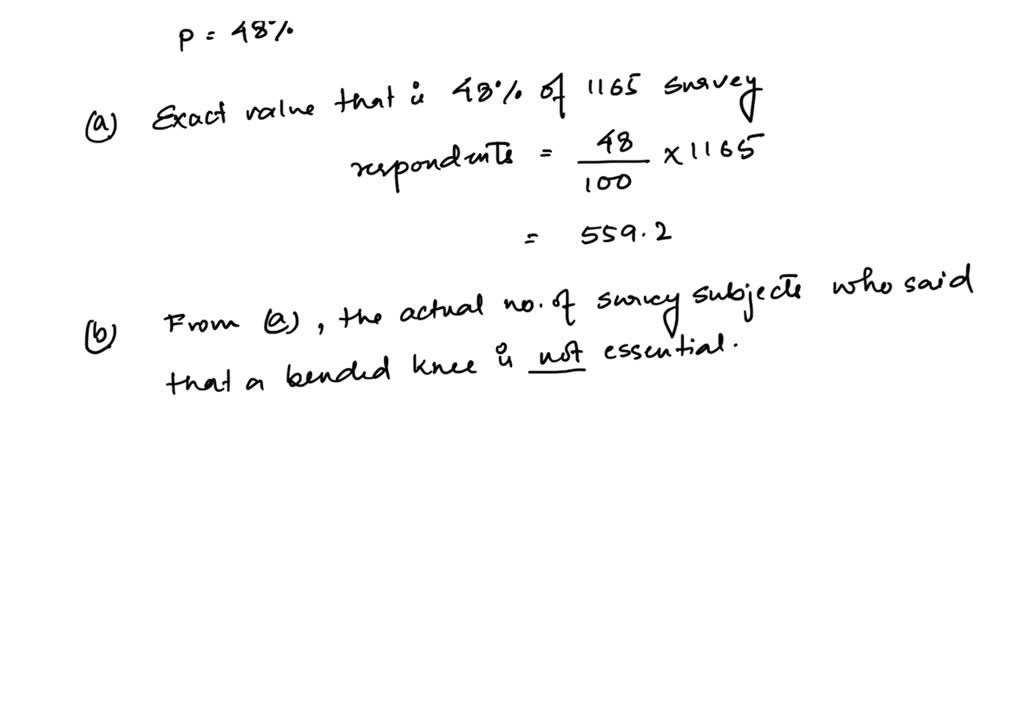 P = 48%
(a) Exact value that is 48% of 1165 survey
respondents = 48/100 × 1165
= 559.2
(b) From (a), the actual no. of survey subjects who said
that a bended knee is not essential.